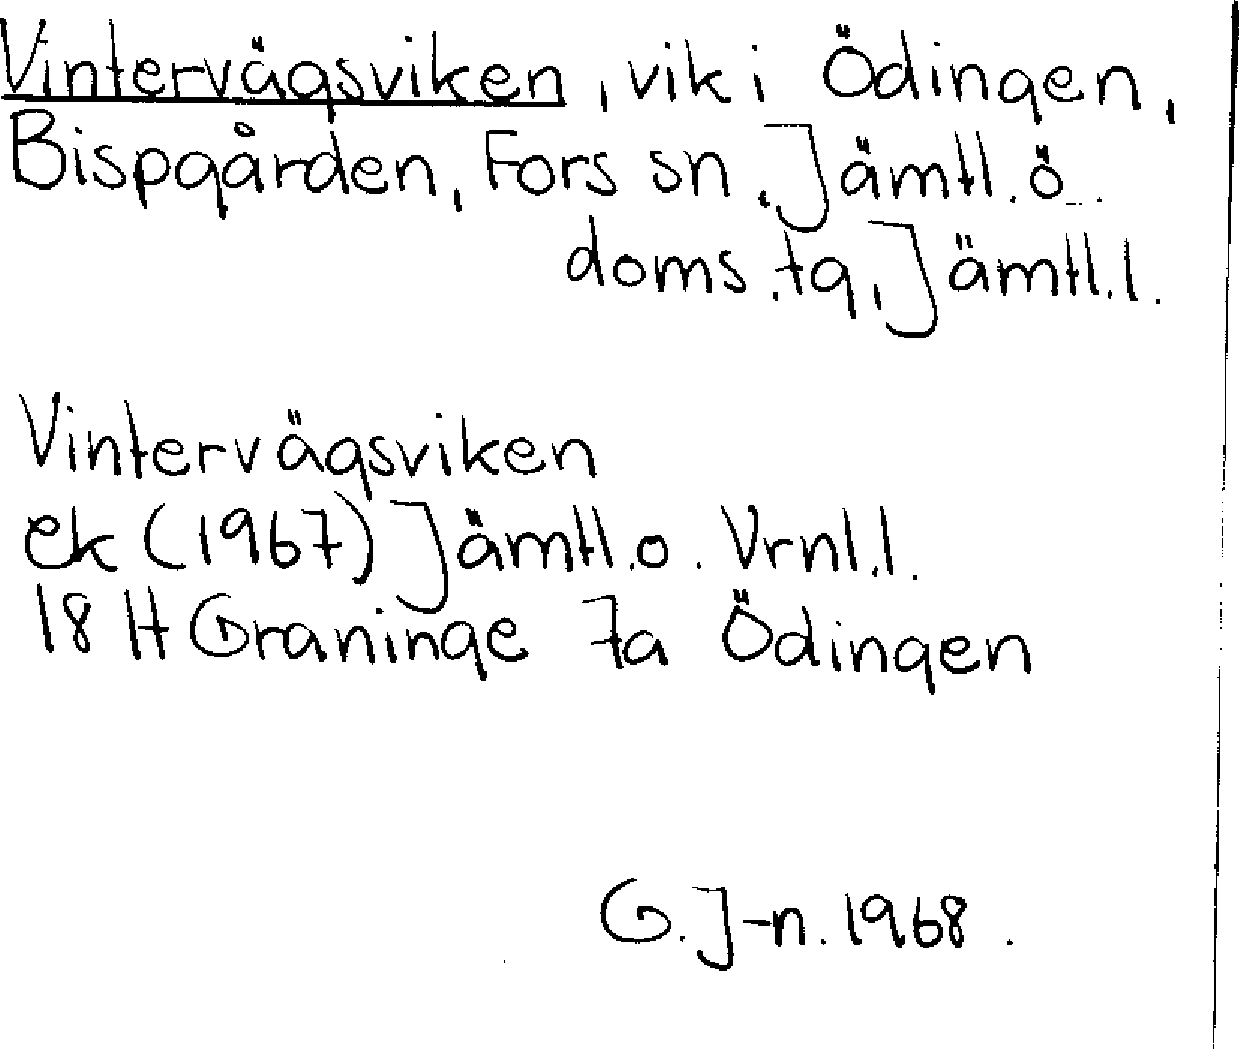 Vintervägsviken, vik i Ödingen,
Bispgården, Fors sn, Jämtl. ö.
doms. tg, Jämtl. l.
Vintervägsviken
ek (1967) Jämtl. o. Vrnl. l.
18 H Graninge 7a Ödingen
G. J-n. 1968.